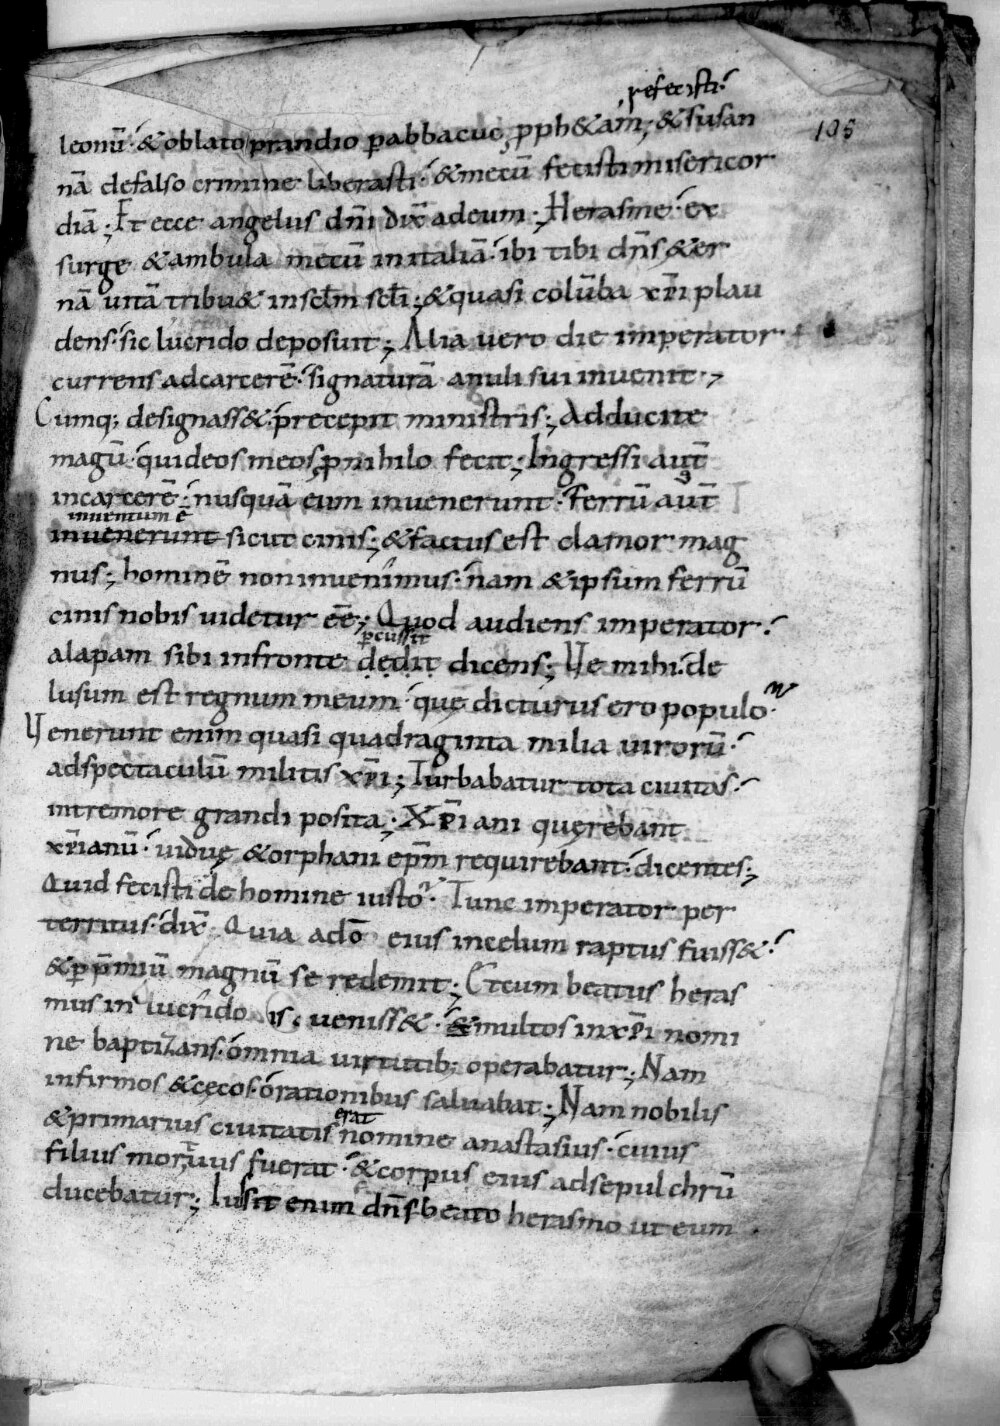 refecisti
leonū · & oblato prandio ꝑ abbacuc ꝓph&am; & susan 105
nā de falso crimine liberasti · & mecū fecisti misericor
diā; Et ecce angelus dn̄i dix̄ ad eum; Herasme · ex
surge & ambula mecū in italiā · ibi tibi dn̄s & &er
nā uitā tribu& in sclm̄ scl̄i; & quasi colūba xp̄i plau
dens · sic lucrido deposuit; Alia uero die imperator
currens ad carcerē · signaturā anuli sui inuenit;
Cumq; designass& · precepit ministris; Adducite
magū · qui deos meos ꝓ nihilo fecit; Ingressi aut̄
in carcerē · nusquā eum inuenerunt · Ferrū aut̄
inuentum ē
inuenerunt sicut cinis; & factus est clamor mag
nus; hominē non inuenimus · nam & ipsum ferrū
cinis nobis uidetur eē; Quod audiens imperator ·
ꝑcussit
alapam sibi in fronte dedit dicens; Ve mihi · de
lusum est regnum meum · quę dicturus ero populo
Venerunt enim quasi quadraginta milia uirorū ·
ad spectaculū militis xp̄i; Turbabatur tota ciuitas ·
in tremore grandi posita; Xp̄iani querebant
xp̄ianū · uiduę & orphani ep̄m requirebant · dicentes;
Quid fecisti de homine iusto · Tunc imperator per
territus · dix̄ Quia ad dō eius in celum raptus fuiss& ·
& ꝑ p̄miū magnū se redemit; Et cum beatus heras
mus in lucrido ueniss& · & multos in xp̄i nomi
ne baptizans · omnia uirtutib; operabatur; Nam
infirmos & cęcos · orationibus saluabat; Nam nobilis
erat
& primarius ciuitatis nomine anastasius · cuius
filius mortuus fuerat · & corpus eius ad sepulchrū
ducebatur; Iusit enim dn̄s beato herasmo ut eum